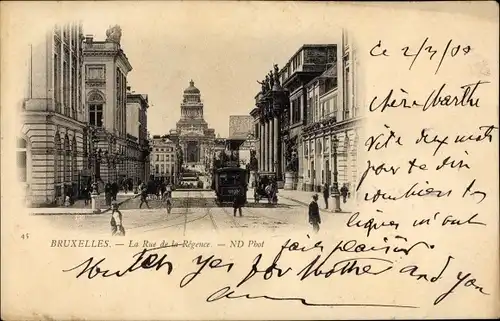 ce 2/3/00
chère Marthe
Vite deux mots
pour te dire
combien tes
lignes m'ont
fait plaisir
Much yes for Mother and you
45
BRUXELLES. — La Rue de la Régence. — ND Phot